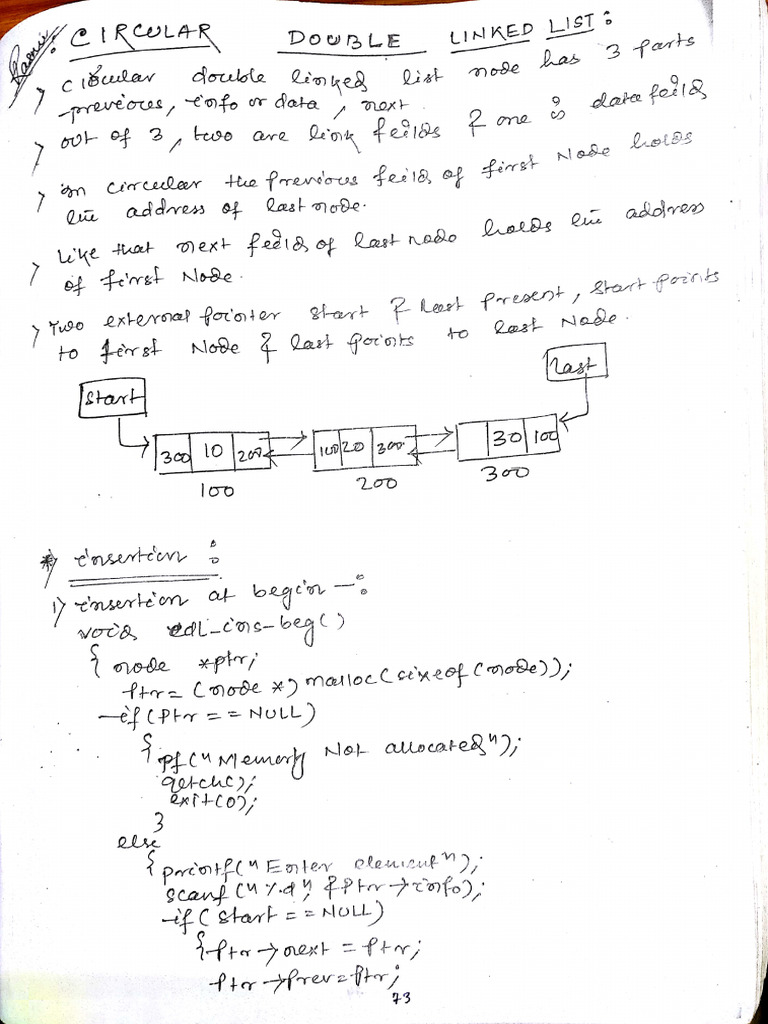 : CIRCULAR DOUBLE LINKED LIST :
> Circular double linked list node has 3 parts
previous, info or data, next.
> out of 3, two are link feilds & one is data feild
> In circular the previous feild of first Node holds
the address of last node.
> Like that next feild of last node holds the address
of first Node.
> Two external pointer start & last present, start points
to first Node & last points to last Node.
Start
Last
300 10 200
100 20 300
30 100
100
200
300
*) insertion :
1) insertion at begin —:
void cdl_ins_beg()
{ node *ptr;
ptr = (node *) malloc(sizeof(node));
if (ptr == NULL)
{
pf("Memory Not allocated");
getch();
exit(0);
}
else
{ printf("Enter element");
scanf("%d", &ptr→info);
if (start == NULL)
{ ptr→next = ptr;
ptr→prev = ptr;
73